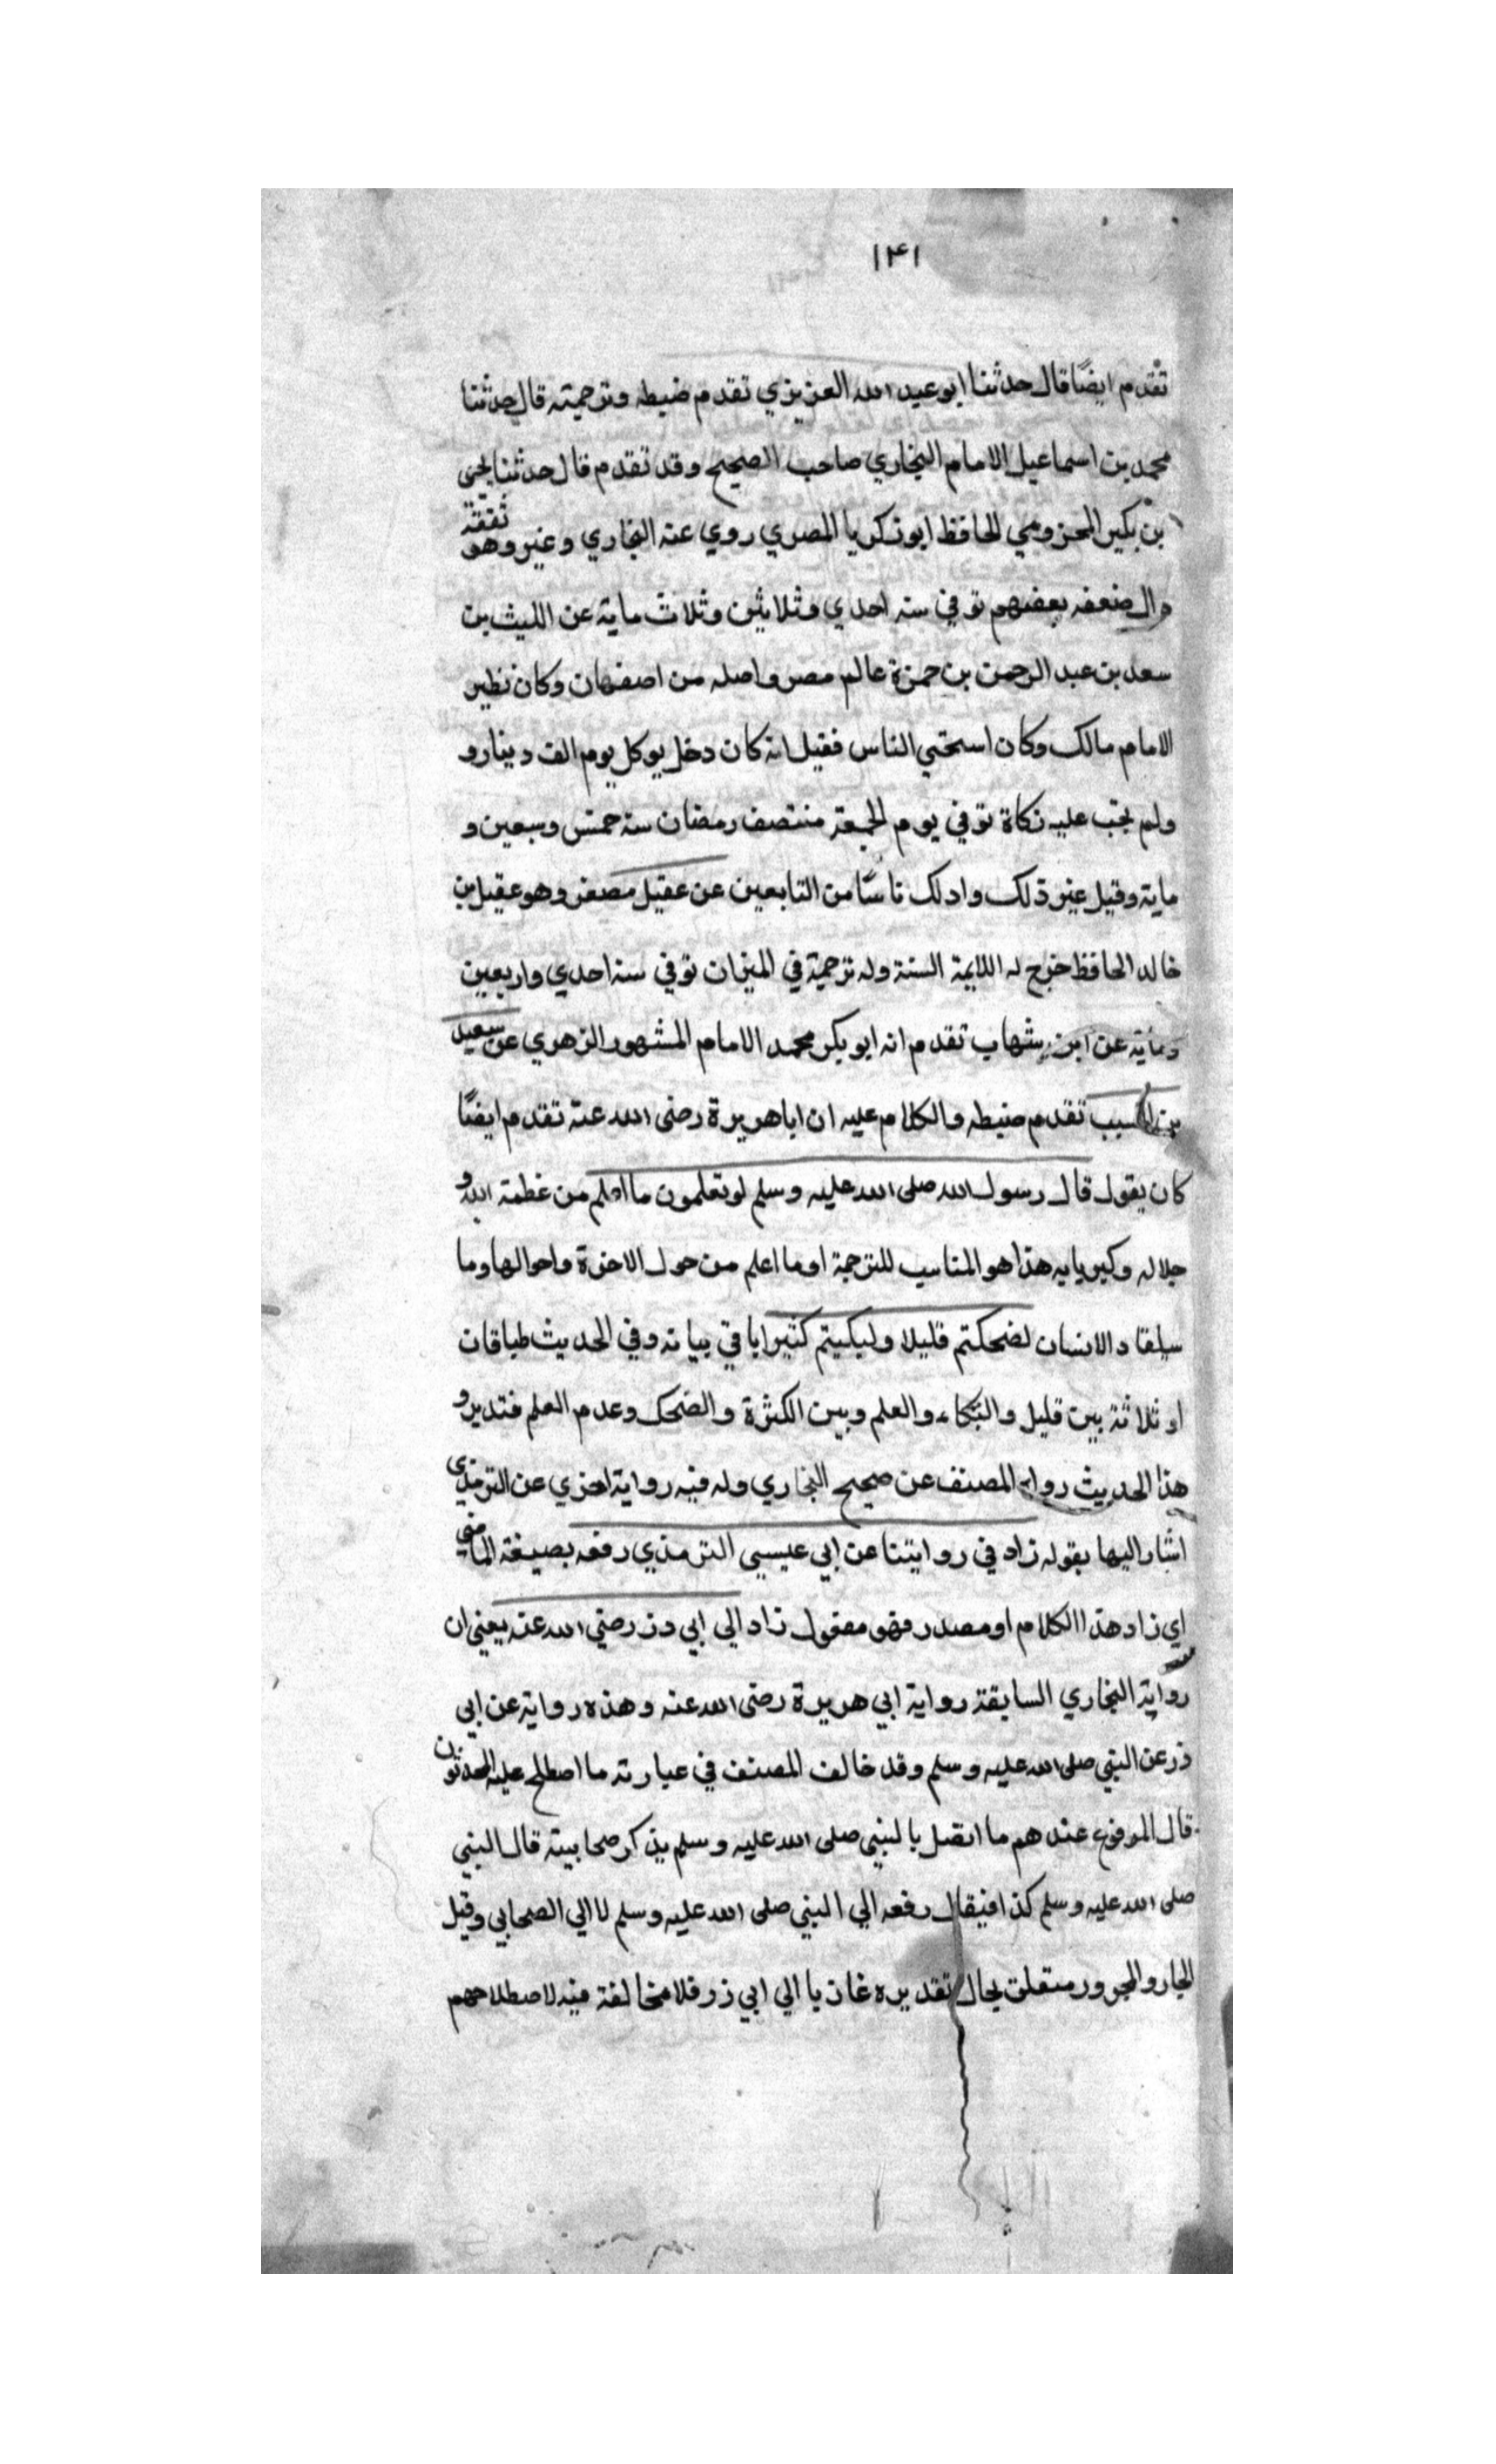 ١٣١
تقدم ايضًا قال حدثنا ابو عبد الله العزيزي تقدم ضبطه وترجمته قال حدثنا
محمد بن اسماعيل الامام البخاري صاحب الصحيح وقد تقدم قال حدثنا يحيى
بن بكير المخزومي الحافظ ابو زكريا المصري روي عنه البخاري وغيره وهو ثقة
وان ضعفه بعضهم توفي سنه احدي وثلاثين وثلاث ماية عن الليث بن
سعد بن عبد الرحمن بن حمزة عالم مصر واصله من اصفهان وكان نظير
الامام مالك وكان اسخي الناس فقيل انه كان دخل يو كل يوم الف دينار و
ولم يجب عليه زكاة توفي يوم الجمعة منتصف رمضان سنة خمس وسبعين و
ماية وقيل غير ذلك وادلك ناسًا من التابعين عن عقيل مصغر وهو عقيل بن
خالد الحافظ خرج له اللايمة الستة وله ترجمة في الميزان توفي سنة احدي واربعين
وماية عن ابن شهاب تقدم انه ابو بكر محمد الامام المشهور الزهري عن سعيد
بن المسيب تقدم ضبطه والكلام عليه ان ابا هريرة رضى الله عنه تقدم ايضًا
كان يقول قال رسول الله صلى الله عليه وسلم لو تعلمون ما اعلم من عظمة الله و
جلاله وكبريايه هذا هو المناسب للترجمة او ما اعلم من حول الاخرة واحوالها وما
سيلقاه الانسان لضحكتم قليلا ولبكيتم كثيرا ياتي بيانه وفي الحديث طباقان
او ثلاثة بين قليل والبكاء والعلم وبين الكثرة والضحك وعدم العلم فتدبر و
هذا الحديث رواه المصنف عن صحيح البخاري وله فيه رواية اخري عن الترمذي
اشار اليها بقوله زاد في روايتنا عن ابي عيسى الترمذي رفعه بصيغة الماضي
اي زاد هذا الكلام او مصدر فهو مفعول زاد الي ابي ذر رضي الله عنه يعني ان
رواية البخاري السابقة رواية ابي هريرة رضى الله عنه وهذه رواية عن ابي
ذر عن النبي صلى الله عليه وسلم وقد خالف المصنف في عبارته ما اصطلح عليه المحدثون
قال المرفوع عندهم ما اتصل بالنبي صلى الله عليه وسلم بذكر صحابيه قال النبي
صلى الله عليه وسلم كذا فيقال رفعه الي النبي صلى الله عليه وسلم لا الي الصحابي وقيل
الجار والمجرور متعلق بحال تقديره عازيا الي ابي ذر فلا مخالفة فيه لاصطلاحهم